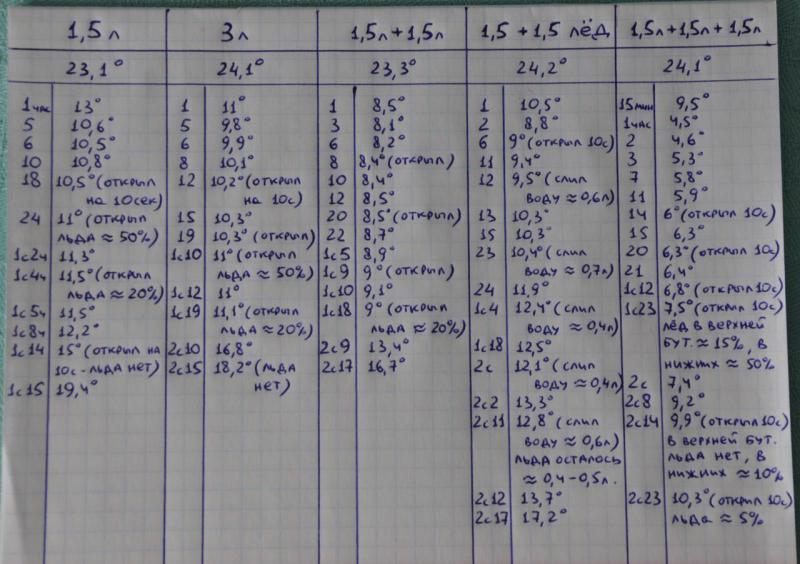 1,5л
23,1°
1час 13°
5 10,6°
6 10,5°
10 10,8°
18 10,5° (открыл
на 10сек)
24 11° (открыл
льда ≈ 50%)
1с2ч 11,3°
1с4ч 11,5° (открыл
льда ≈ 20%)
1с5ч 11,5°
1с8ч 12,2°
1с14 15° (открыл на
10с - льда нет)
1с15 19,4°
3л
24,1°
1 11°
5 9,8°
6 9,9°
8 10,1°
12 10,2° (открыл
на 10с)
15 10,3°
19 10,3° (открыл)
1с10 11° (открыл
льда ≈ 50%)
1с12 11°
1с19 11,1° (открыл
льда ≈ 20%)
2с10 16,8°
2с15 18,2° (льда
нет)
1,5л + 1,5л
23,3°
1 8,5°
3 8,1°
6 8,2°
8 8,4° (открыл)
10 8,4°
12 8,5°
20 8,5° (открыл)
22 8,7°
1с5 8,9°
1с9 9° (открыл)
1с10 9,1°
1с18 9° (открыл
льда ≈ 20%)
2с9 13,4°
2с17 16,7°
1,5 + 1,5 лёд
24,2°
1 10,5°
2 8,8°
6 9° (открыл 10с)
11 9,4°
12 9,5° (слил
воду ≈ 0,6л)
13 10,3°
15 10,3°
23 10,4° (слил
воду ≈ 0,7л)
24 11,9°
1с4 12,4° (слил
воду ≈ 0,4л)
1с18 12,5°
2с 12,1° (слил
воду ≈ 0,4л)
2с2 13,3°
2с11 12,8° (слил
воду ≈ 0,6л)
льда осталось
≈ 0,4-0,5л.
2с12 13,7°
2с17 17,2°
1,5л + 1,5л + 1,5л
24,1°
15мин 9,5°
1час 4,5°
2 4,6°
3 5,3°
7 5,8°
11 5,9°
14 6° (открыл 10с)
15 6,3°
20 6,3° (открыл 10с)
21 6,4°
1с12 6,8° (открыл 10с)
1с23 7,5° (открыл 10с)
лёд в верхней
бут. ≈ 15%, в
нижних ≈ 50%
2с 7,4°
2с8 9,2°
2с14 9,9° (открыл 10с)
в верхней бут.
льда нет, в
нижних ≈ 10%
2с23 10,3° (открыл 10с)
льда ≈ 5%